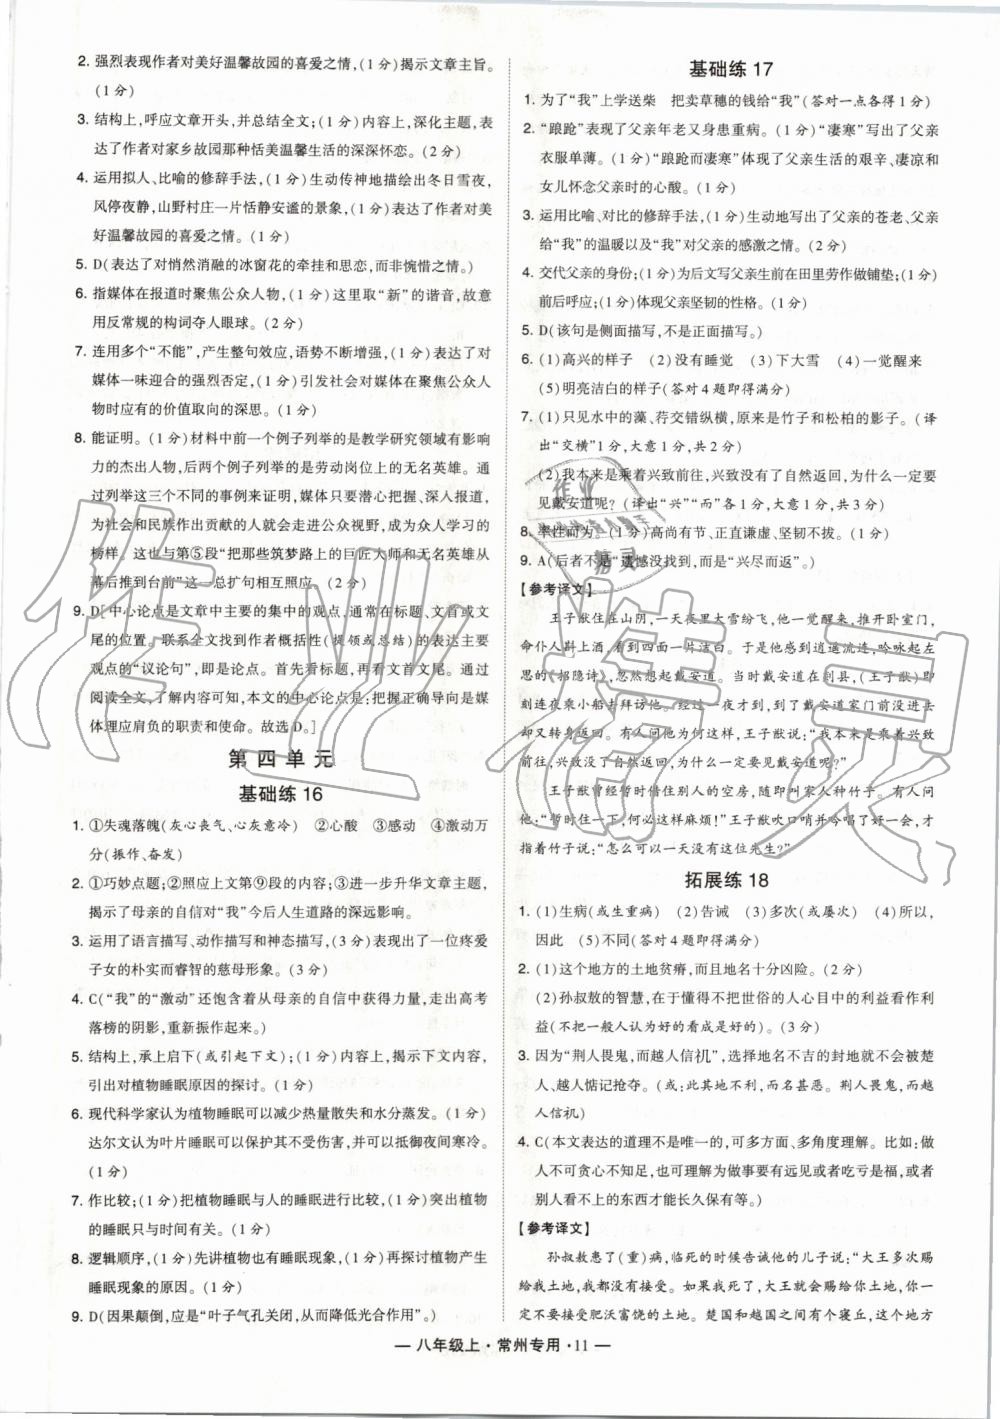 2. 强烈表现作者对美好温馨故园的喜爱之情,(1分)揭示文章主旨。
(1分)
3. 结构上,呼应文章开头,并总结全文;(1分)内容上,深化主题,表
达了作者对家乡故园那种恬美温馨生活的深深怀恋。(2分)
4. 运用拟人、比喻的修辞手法,(1分)生动传神地描绘出冬日雪夜,
风停夜静,山野村庄一片恬静安谧的景象,(1分)表达了作者对美
好温馨故园的喜爱之情。(1分)
5. D(表达了对悄然消融的冰窗花的牵挂和思恋,而非惋惜之情。)
6. 指媒体在报道时聚焦公众人物,(1分)这里取“新”的谐音,故意
用反常规的构词夺人眼球。(2分)
7. 连用多个“不能”,产生整句效应,语势不断增强,(1分)表达了对
媒体一味迎合的强烈否定,(1分)引发社会对媒体在聚焦公众人
物时应有的价值取向的深思。(1分)
8. 能证明。(1分)材料中前一个例子列举的是教学研究领域有影响
力的杰出人物,后两个例子列举的是劳动岗位上的无名英雄。通
过列举这三个不同的事例来证明,媒体只要潜心把握、深入报道,
为社会和民族作出贡献的人就会走进公众视野,成为众人学习的
榜样。这也与第⑤段“把那些筑梦路上的巨匠大师和无名英雄从
幕后推到台前”这一总扩句相互照应。(2分)
9. D[中心论点是文章中主要的集中的观点,通常在标题、文首或文
尾的位置。联系全文找到作者概括性(提领或总结)的表达主要
观点的“议论句”,即是论点。首先看标题,再看文首文尾。通过
阅读全文,了解内容可知,本文的中心论点是:把握正确导向是媒
体理应肩负的职责和使命。故选D。]
第四单元
基础练16
1. ①失魂落魄(灰心丧气、心灰意冷) ②心酸 ③感动 ④激动万
分(振作、奋发)
2. ①巧妙点题;②照应上文第⑨段的内容;③进一步升华文章主题,
揭示了母亲的自信对“我”今后人生道路的深远影响。
3. 运用了语言描写、动作描写和神态描写,(3分)表现出了一位疼爱
子女的朴实而睿智的慈母形象。(3分)
4. C(“我”的“激动”还饱含着从母亲的自信中获得力量,走出高考
落榜的阴影,重新振作起来。)
5. 结构上,承上启下(或引起下文);(1分)内容上,揭示主题,(1分)
引出对植物睡眠原因的探讨。(1分)
6. 现代科学家认为植物睡眠可以减少热量散失和水分蒸发。(1分)
达尔文认为叶片睡眠可以保护其不受伤害,并可以抵御夜间寒冷。
(1分)
7. 作比较;(1分)把植物睡眠与人的睡眠进行比较,(1分)突出植物
的睡眠只与时间有关。(1分)
8. 逻辑顺序,(1分)先讲植物也有睡眠现象,(1分)再探讨植物产生
睡眠现象的原因。(1分)
9. D(因果颠倒,应是“叶子气孔关闭,从而降低光合作用”。)
基础练17
1. 为了“我”上学送柴 把卖草穗的钱给“我”(答对一点各得1分)
2. “踉跄”表现了父亲年老又身患重病。(1分)“凄寒”写出了父亲
衣服单薄。(1分)“踉跄而凄寒”体现了父亲生活的艰辛、凄凉和
女儿怀念父亲时的心酸。(1分)
3. 运用比喻、对比的修辞手法,(1分)生动地写出了父亲的苍老、父亲
给“我”的温暖以及“我”对父亲的感激之情。(2分)
4. 交代父亲的身份;(1分)为后文写父亲生前在田里劳作做铺垫;(1分)
前后呼应;(1分)体现父亲坚韧的性格。(1分)
5. D(该句是侧面描写,不是正面描写。)
6. (1)高兴的样子 (2)没有睡觉 (3)下大雪 (4)一觉醒来
(5)明亮洁白的样子(答对4题即得满分)
7. (1)只见水中的藻、荇交错纵横,原来是竹子和松柏的影子。(译
出“交横”1分,大意1分,共2分)
(2)我本来是乘着兴致前往,兴致没有了自然返回,为什么一定要
见戴安道呢?(译出“兴”“而”各1分,大意1分,共3分)
8. 率性而为。(1分)高尚有节、正直谦虚、坚韧不拔。(1分)
9. A(后者不是“遗憾没找到,而是“兴尽而返”。)
【参考译文】
王子猷住在山阴,一天夜里大雪纷飞,他一觉醒来,推开卧室门,
命仆人斟上酒,看到四面一片洁白。于是他感到逍遥流连,吟咏起左
思的《招隐诗》,忽然想起戴安道。当时戴安道在剡县,(王子猷)即
刻连夜乘小船去拜访他。经过一夜才到,到了戴安道家门前没进去
却又转身返回。有人问他为何这样,王子猷说:“我本来是乘着兴致
前往,兴致没了自然返回,为什么一定要见戴安道呢?”
王子猷曾经暂时借住在别人的空房里,随即叫家人种竹子。有人问
他:“暂时住一下,何必这样麻烦!”王子猷吹口哨并吟唱了好一会,才
指着竹子说:“怎么可以一天没有这位先生?”
拓展练18
1. (1)生病(或生重病) (2)告诫 (3)多次(或屡次) (4)所以,
因此 (5)不同(答对4题即得满分)
2. (1)这个地方的土地贫瘠,而且地名十分凶险。(2分)
(2)孙叔敖的智慧,在于懂得不把世俗的人心目中的利益看作利
益(不把一般人认为好的看成是好的)。(3分)
3. 因为“荆人畏鬼,而越人信禨”,选择地名不吉的封地就不会被楚
人、越人惦记抢夺。(或:此其地不利,而名甚恶。荆人畏鬼,而越
人信禨)
4. C(本文表达的道理不是唯一的,可多方面、多角度理解。比如:做
人不可贪心不知足,也可理解为做事要有远见或者吃亏是福,或者
别人看不上的东西才能长久保有等。)
【参考译文】
孙叔敖患了(重)病,临死的时候告诫他的儿子说:“大王多次赐
给我土地,我都没有接受。如果我死了,大王就会赐给你土地,你一
定不要接受肥沃富饶的土地。楚国和越国之间有个寝丘,这个地方
— 八年级上·常州专用·11 —
作业精灵
作业
精灵